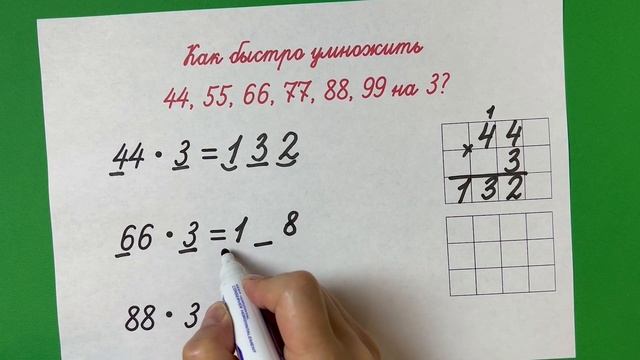 Как быстро умножить
44, 55, 66, 77, 88, 99 на 3?
44 · 3 = 132
66 · 3 = 1 _ 8
88 · 3
1
44
×
3
132